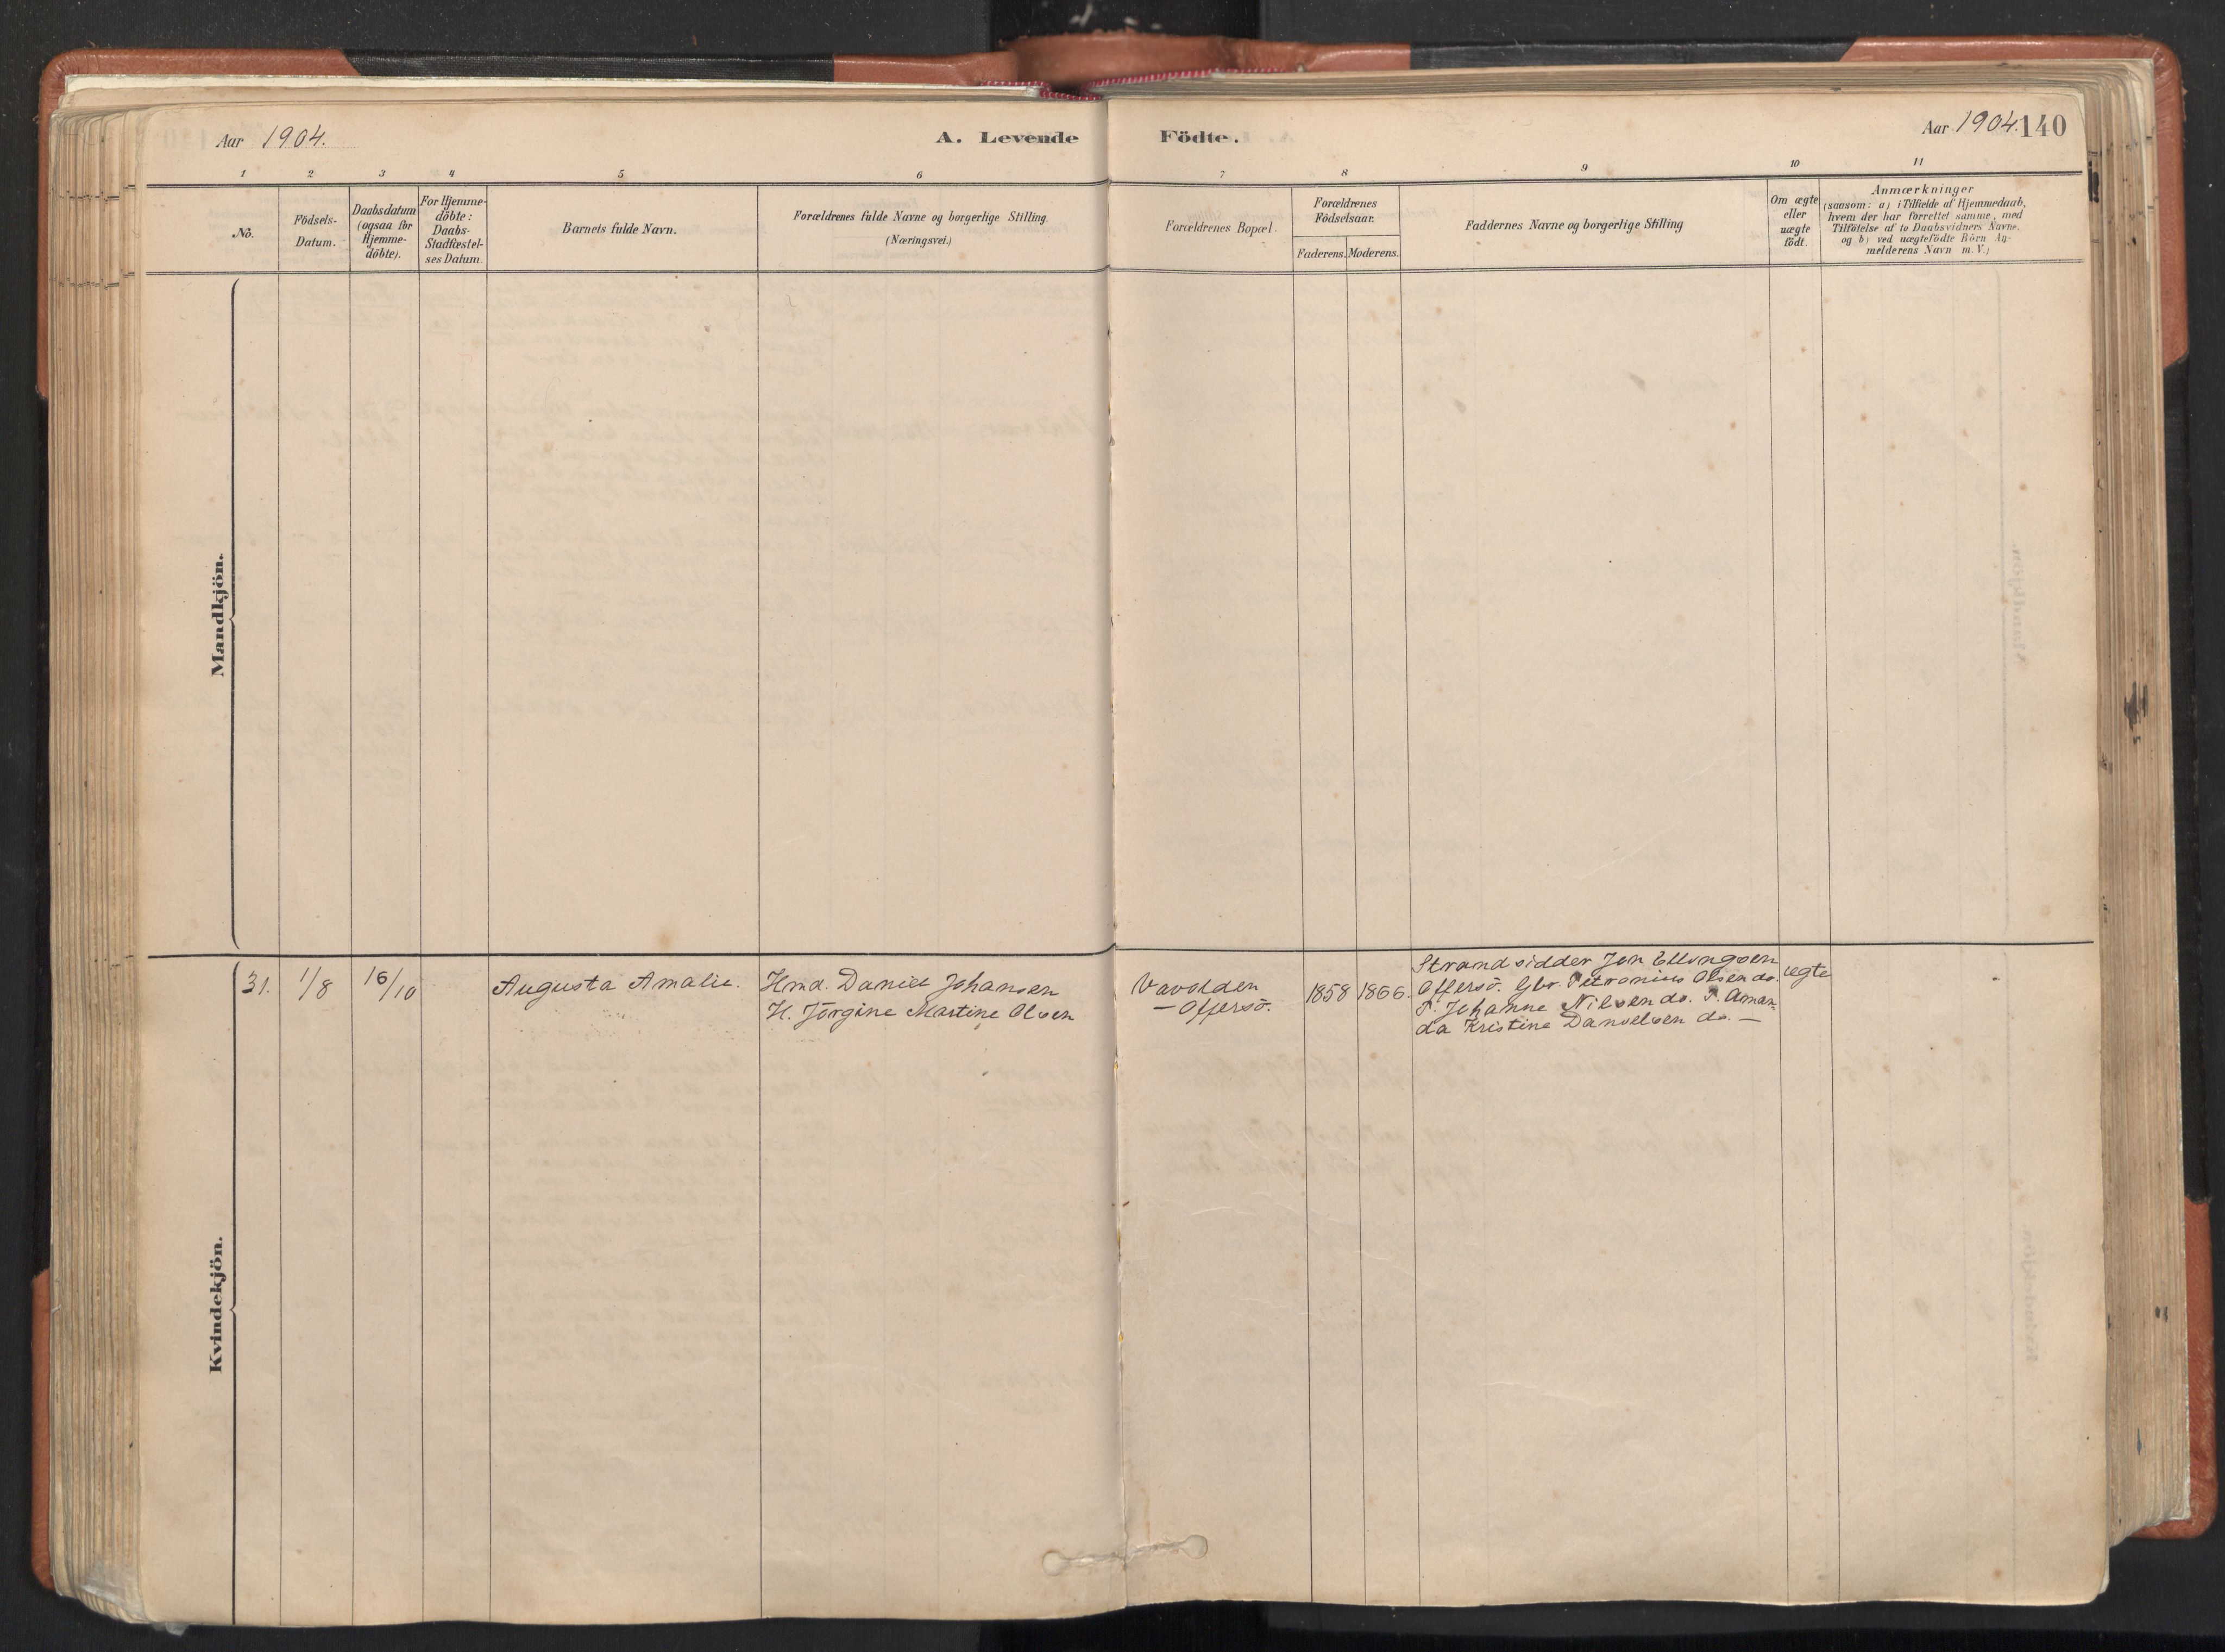 Aar 1904.
A. Levende
Födte.
Aar 1904.
140
1 2 3 4 5 6 7 8 9 10 11
No.
Födsels-
Datum.
Daabsdatum
(ogsaa for
Hjemme-
döbte).
For Hjemme-
döbte:
Daabs-
Stadfæstel-
ses Datum.
Barnets fulde Navn.
Forældrenes fulde Navne og borgerlige Stilling.
(Næringsvei.)
Forældrenes Bopæl.
Forældrenes
Födselsaar.
Faderens.
Moderens.
Faddernes Navne og borgerlige Stilling
Om ægte
eller
uægte
födt.
Anmærkninger
(saasom: a) i Tilfælde af Hjemmedaab,
hvem der har forrettet samme, med
Tilföielse af to Daabsvidners Navne,
og b) ved uægtefödte Börn An-
melderens Navn m. V.)
Mandkjön.
Kvindekjön.
31.
1/8
16/10
Augusta Amalie.
Hmd. Daniel Johansen
H. Jörgine Martine Olsen
Vavolden
— Offersö.
1858
1866.
Strandsidder Jon Ellingsen
Offersö. Gbr. Petronius Olsen do.
P. Johanne Nilsen do. P. Aman-
da Kristine Danielsen do. —
ægte